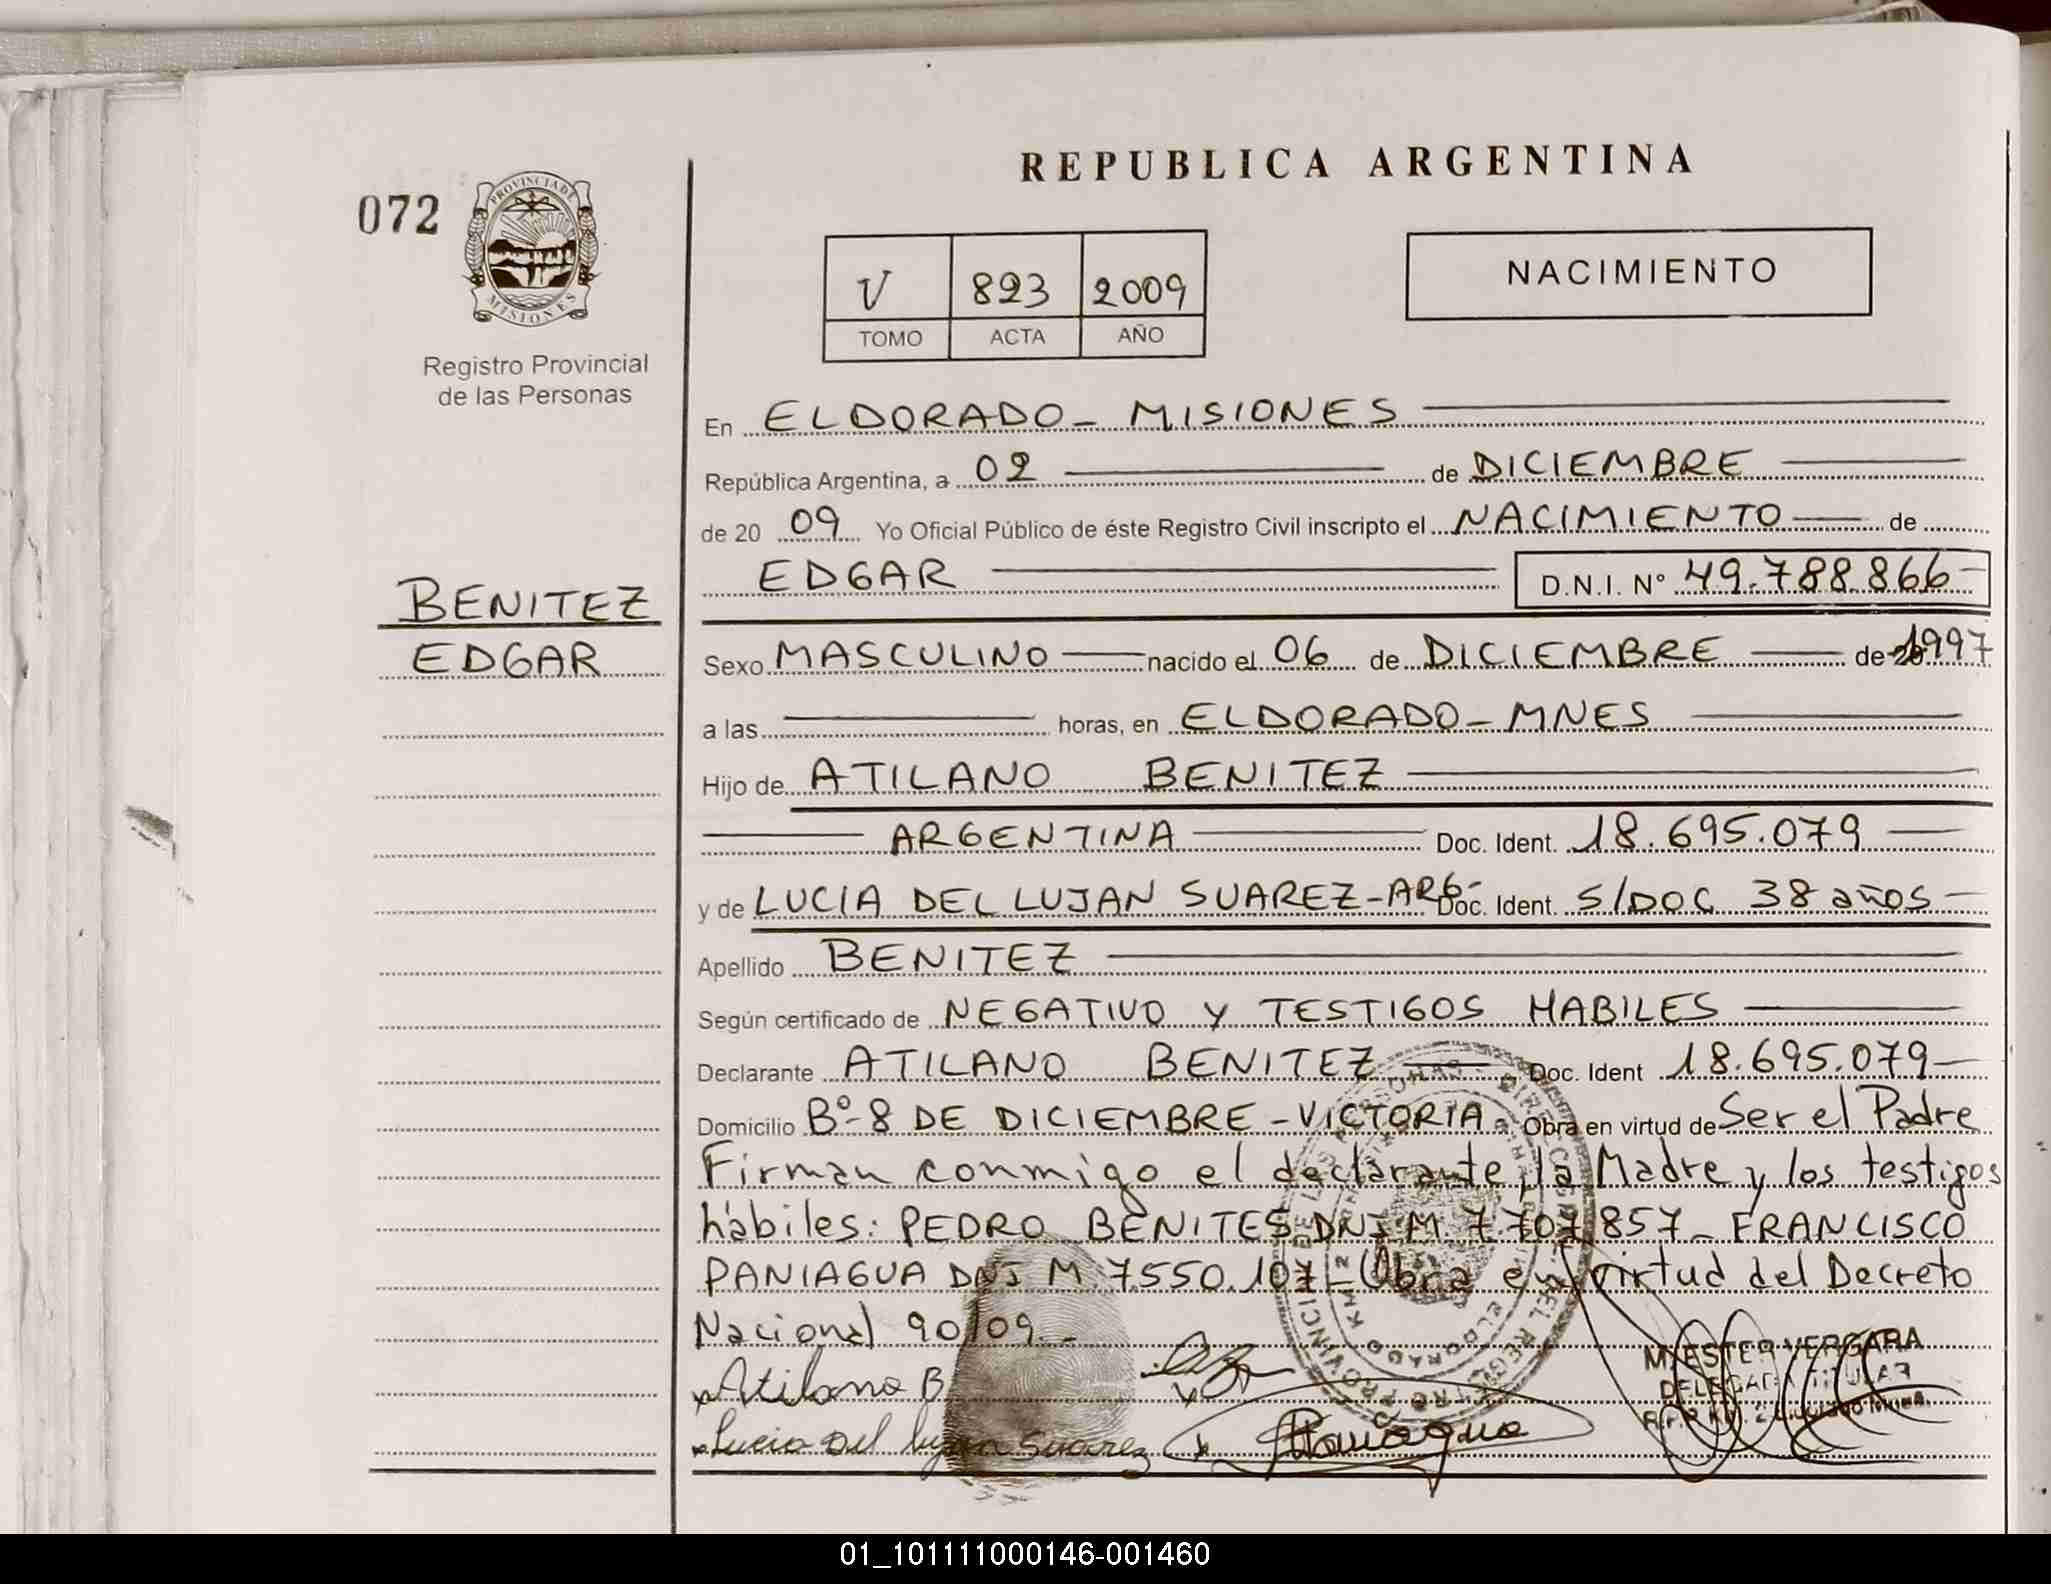 REPUBLICA ARGENTINA
072
PROVINCIA DE
MISIONES
Registro Provincial
de las Personas
V 823 2009
TOMO ACTA AÑO
NACIMIENTO
En ELDORADO - MISIONES
República Argentina, a 02 de DICIEMBRE
de 20 09 Yo Oficial Público de éste Registro Civil inscripto el NACIMIENTO de
EDGAR D.N.I. Nº 49.788.866
BENITEZ
EDGAR
Sexo MASCULINO nacido el 06 de DICIEMBRE de 1997
a las horas, en ELDORADO - MNES
Hijo de ATILANO BENITEZ
ARGENTINA Doc. Ident. 18.695.079
y de LUCIA DEL LUJAN SUAREZ - ARG- Doc. Ident. S/DOC 38 años
Apellido BENITEZ
Según certificado de NEGATIVO Y TESTIGOS HABILES
Declarante ATILANO BENITEZ Doc. Ident 18.695.079
Domicilio Bº-8 DE DICIEMBRE - VICTORIA Obra en virtud de Ser el Padre
Firman conmigo el declarante, la Madre y los testigos
hábiles: PEDRO BENITES DNI M 7.707.857 - FRANCISCO
PANIAGUA DNI M. 7.550.107 - Obra en virtud del Decreto
Nacional 90/09 -
Atilano B
M. ESTER VERGARA
DELEGADA TITULAR
Lucia Del lujan Suarez
Paniagua
01_101111000146-001460